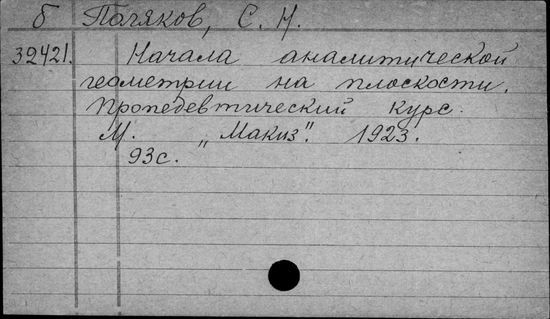 б Пагяков, С. Н.
32421. Начала аналитической
геометрии на плоскости.
Пропедевтический курс.
М. „Макиз". 1923.
93с.